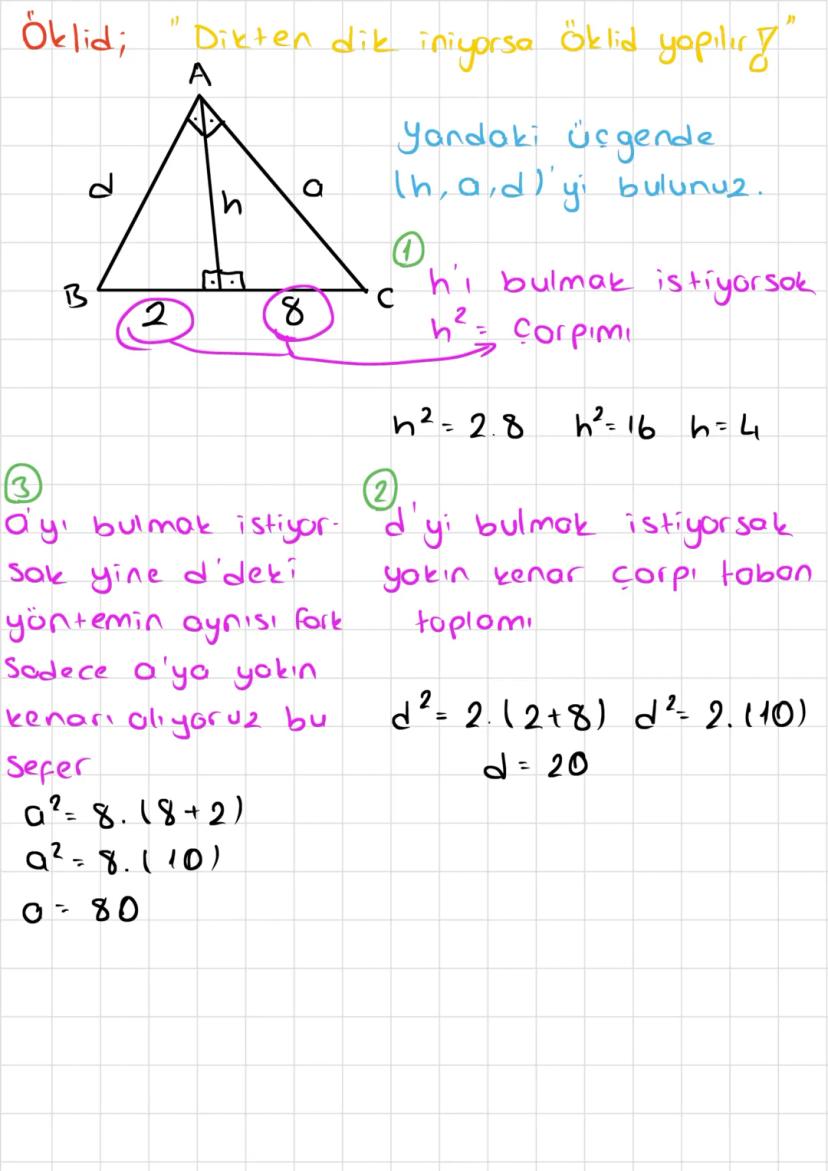 Öklid; "Dikten dik iniyorsa Öklid yapılır!"
A
Yandaki üçgende
(h, a, d)'yi bulunuz.
d
h
a
B
C
2
8
①
h'ı bulmak istiyorsak
h² = Çarpımı
h² = 2.8 h² = 16 h = 4
②
d'yi bulmak istiyorsak
yakın kenar çarpı taban
toplamı
d² = 2.(2+8) d² = 2.(10)
d = 20
③
a'yı bulmak istiyor-
sak yine d'deki
yöntemin aynısı fark
Sadece a'ya yakın
kenarı alıyoruz bu
Sefer
a² = 8.(8+2)
a² = 8.(10)
a = 80